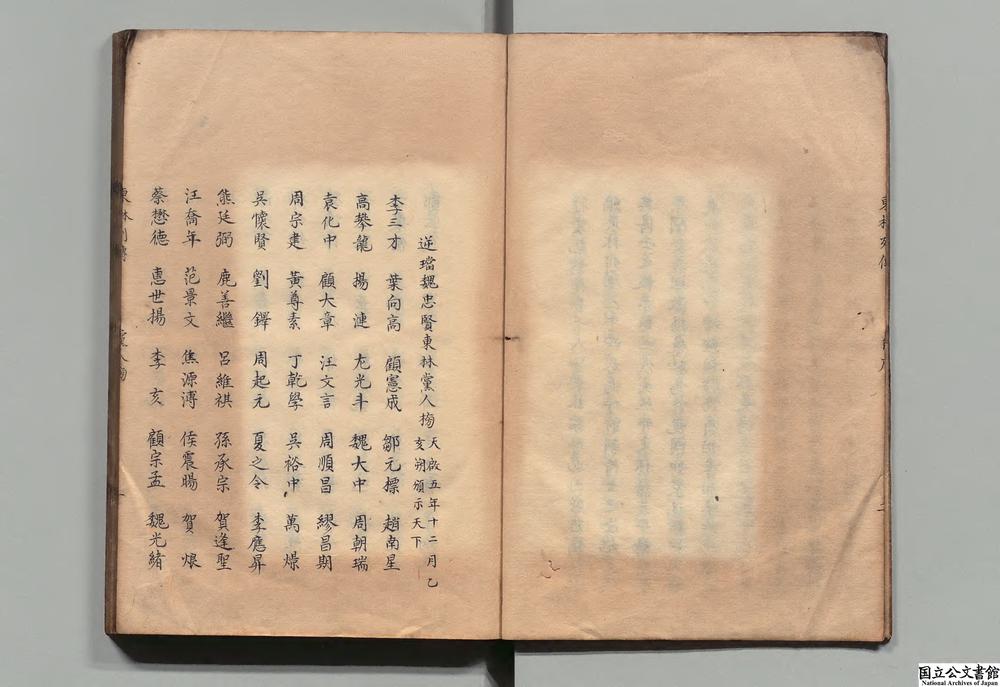 東林列傳
逆璫魏忠賢東林黨人榜 天啟五年十二月乙
亥朔頒示天下
李三才 葉向高 顧憲成 鄒元標 趙南星
高攀龍 揚漣 左光斗 魏大中 周朝瑞
袁化中 顧大章 汪文言 周順昌 繆昌期
周宗建 黃尊素 丁乾學 吳裕中 萬燝
吳懷賢 劉鐸 周起元 夏之令 李應昇
熊廷弼 鹿善繼 呂維祺 孫承宗 賀逢聖
汪喬年 范景文 焦源溥 侯震暘 賀烺
蔡懋德 惠世揚 李亥 顧宗孟 魏光緒
東林列傳
国立公文書館
National Archives of Japan